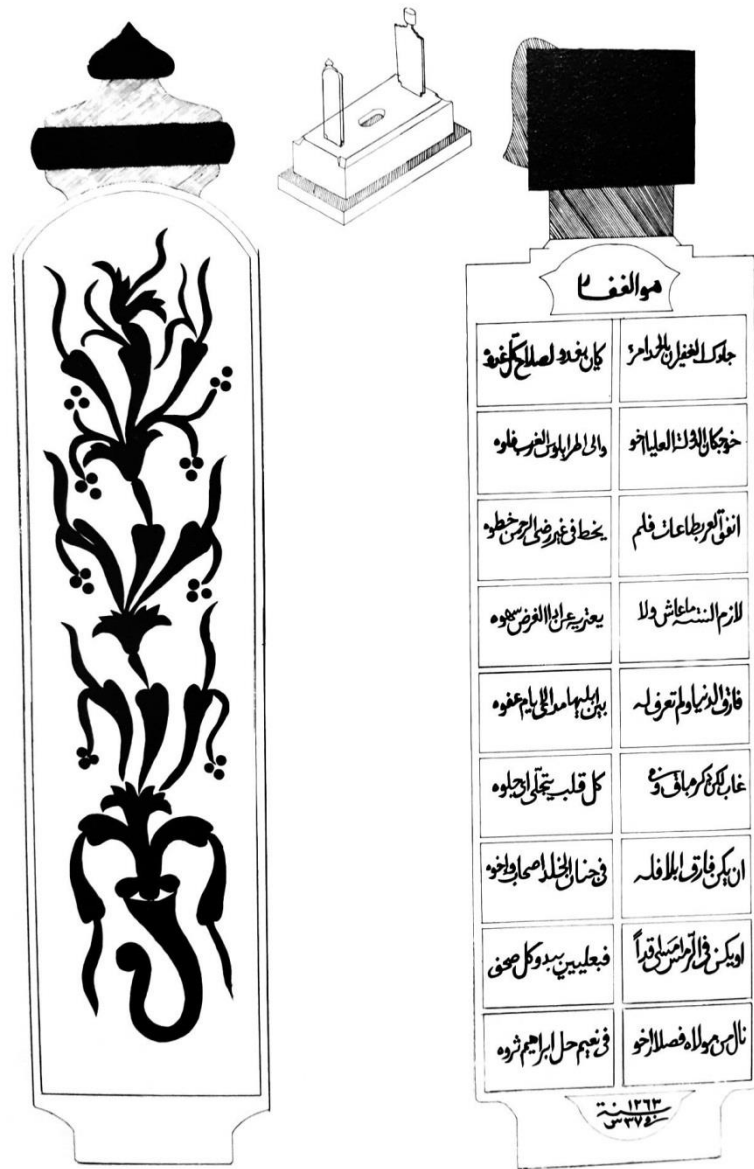 هو الغفار
جادك الغفران بالحد امرئ كان يغدو لصلاح كل غدوه
خوجكان الدولة العليا اخو والى اطرابلوس الغرب فلوه
انفق العمر بطاعات فلم يخط فى غير رضى الرحمن خطوه
لازم السنة ما عاش ولا يعتريه عن ادا الفرض سهوه
فارق الدنيا ولم تعرف له بين اهليها مدا الايام عفوه
غاب لكن ذكره باق كل قلب يتجلى اى جلوه
ان يكن فارق ابلا فله فى جنان الخلد اصحاب واخوه
او يكن فى الرمس امسى راقداً فبعليين يبدو كل
نال من مولاه فضلا ارخو فى نعيم حل ابراهيم ثروه
سنة ١٢٦٣